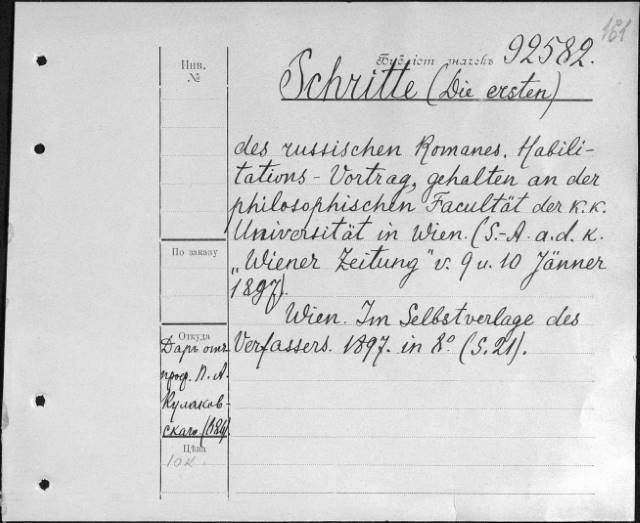 161
Инв.
№
92582.
Schritte (Die ersten)
des russischen Romanes. Habili-
tations-Vortrag, gehalten an der
philosophischen Facultät der k. k.
Universität in Wien. (S.-A. a. d. k.
„Wiener Zeitung" v. 9 u. 10 Jänner
1897).
Wien. Im Selbstverlage des
Verfassers. 1897. in 8° (S. 21).
По заказу
Откуда
Даръ отъ
проф. П. А.
Кулаков-
скаго
Цѣна
10 к.